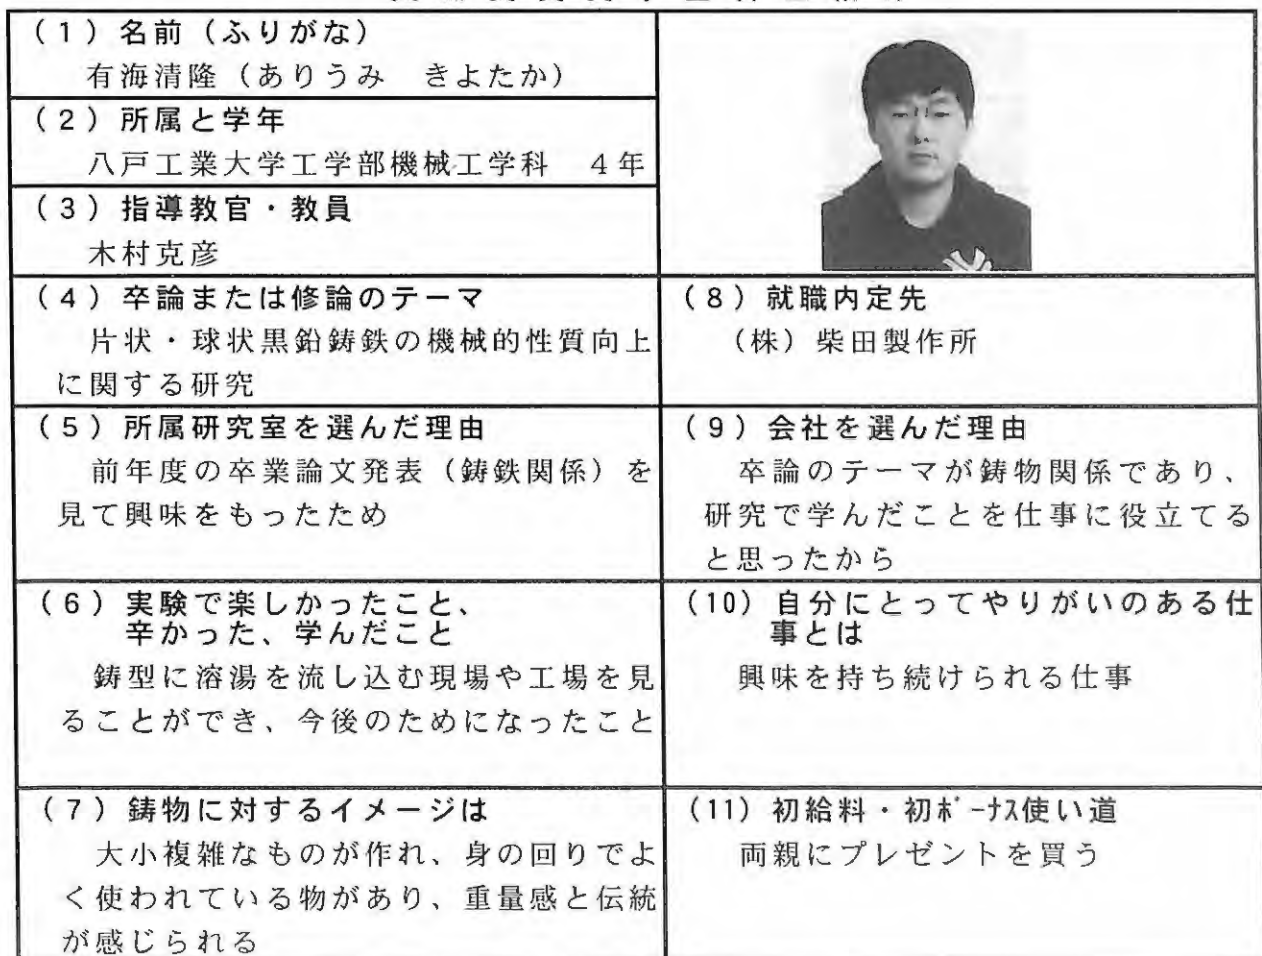 (1) 名前 (ふりがな)
有海清隆 (ありうみ きよたか)
(2) 所属と学年
八戸工業大学工学部機械工学科 4年
(3) 指導教官・教員
木村克彦
(4) 卒論または修論のテーマ
片状・球状黒鉛鋳鉄の機械的性質向上
に関する研究
(5) 所属研究室を選んだ理由
前年度の卒業論文発表 (鋳鉄関係) を
見て興味をもったため
(6) 実験で楽しかったこと、
辛かった、学んだこと
鋳型に溶湯を流し込む現場や工場を見
ることができ、今後のためになったこと
(7) 鋳物に対するイメージは
大小複雑なものが作れ、身の回りでよ
く使われている物があり、重量感と伝統
が感じられる
(8) 就職内定先
(株) 柴田製作所
(9) 会社を選んだ理由
卒論のテーマが鋳物関係であり、
研究で学んだことを仕事に役立てる
と思ったから
(10) 自分にとってやりがいのある仕
事とは
興味を持ち続けられる仕事
(11) 初給料・初ﾎﾞｰﾅｽ使い道
両親にプレゼントを買う